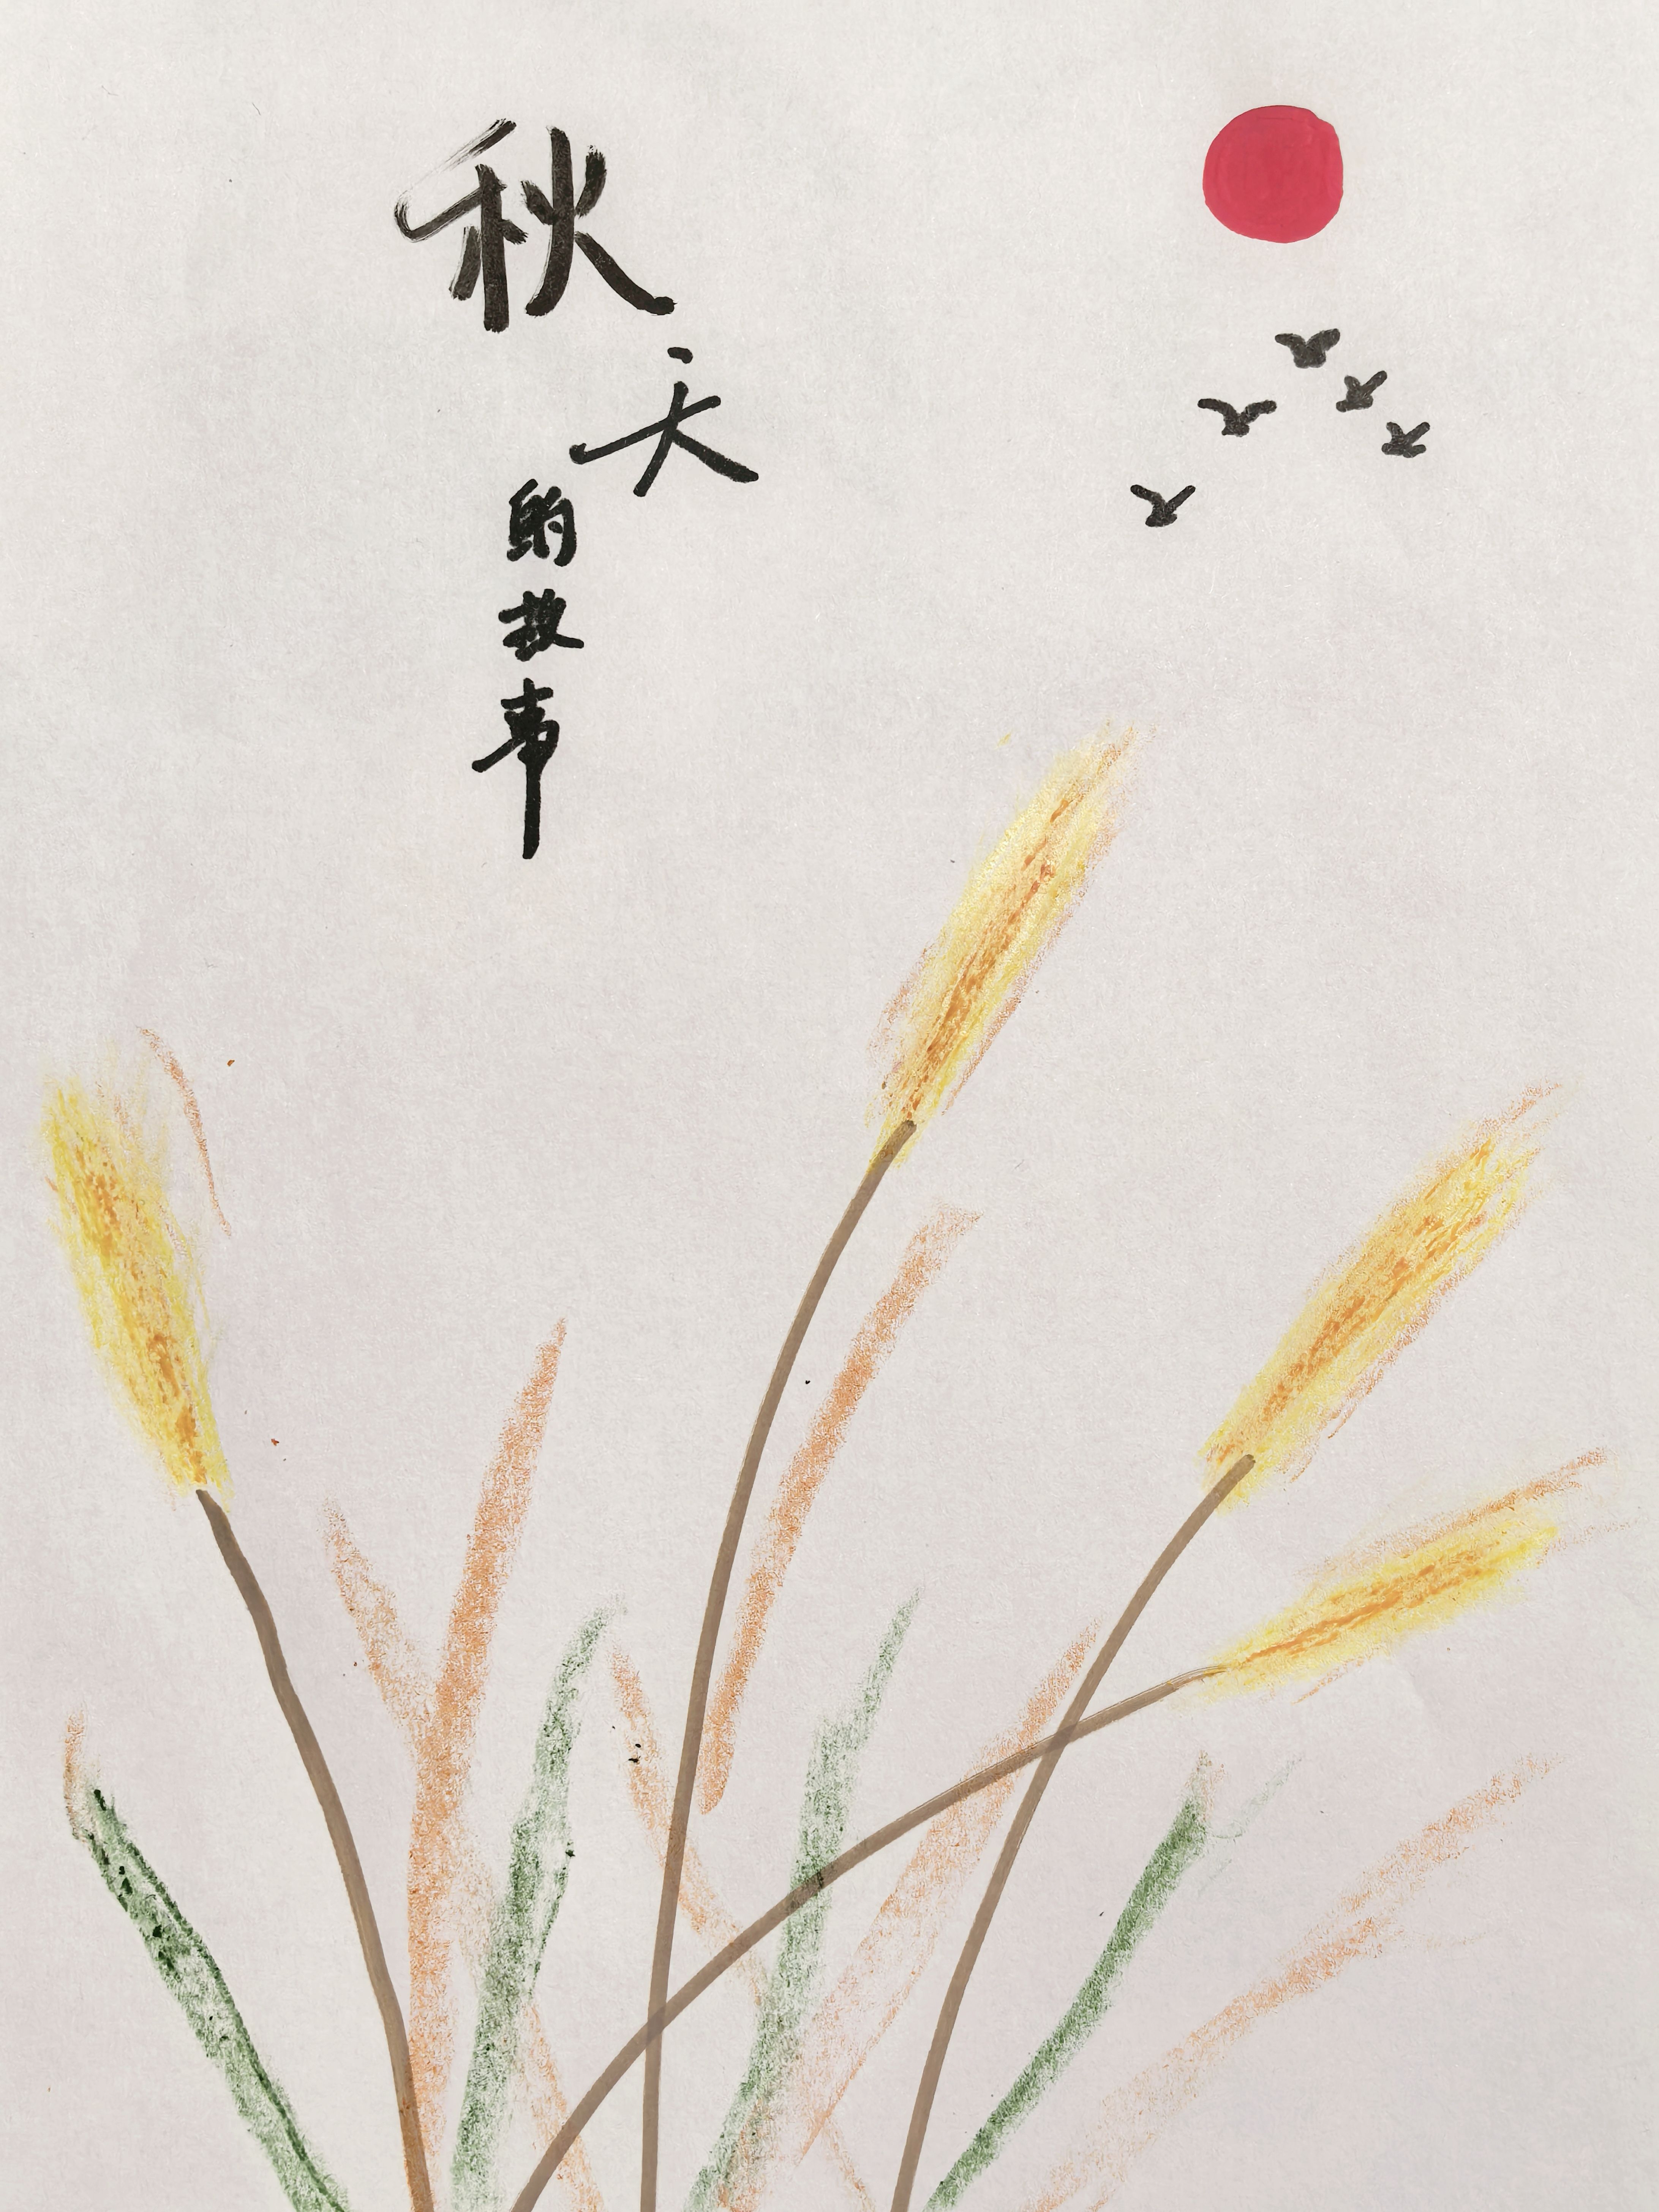 秋天
的故事